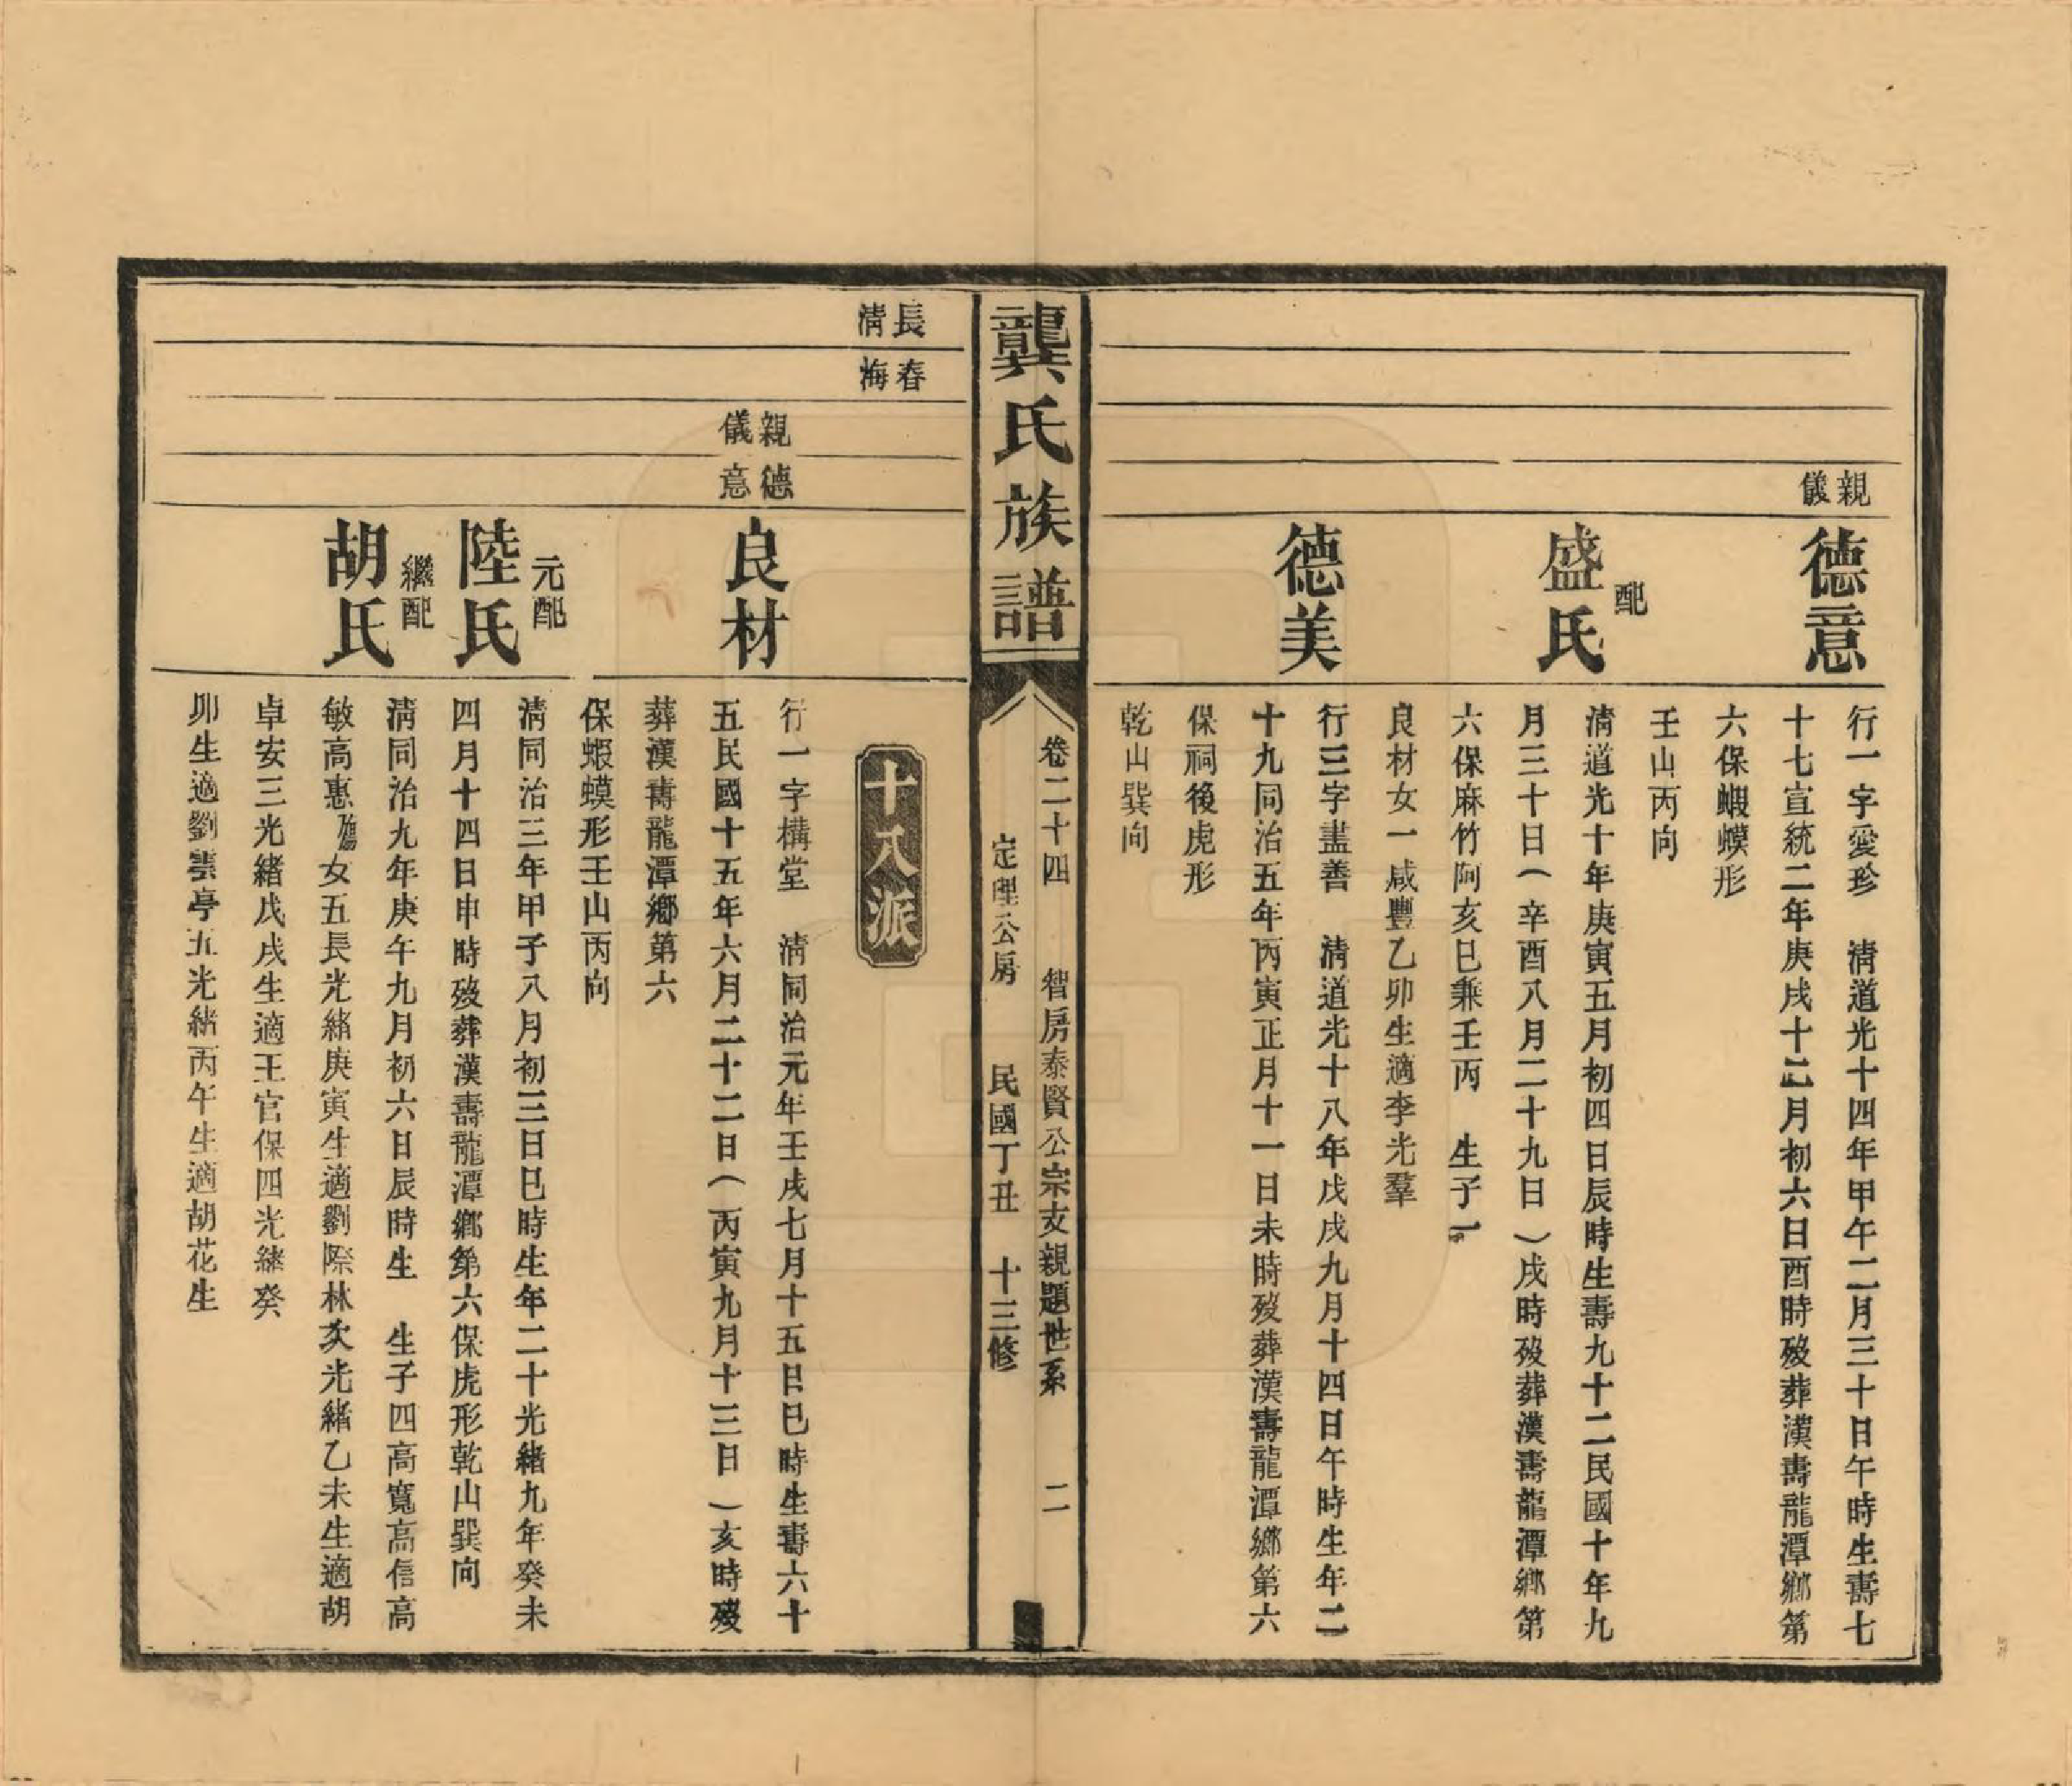 親儀
德意
行一字愛珍　清道光十四年甲午二月三十日午時生壽七
十七宣統二年庚戌十二月初六日酉時歿葬漢壽龍潭鄉第
六保蝦蟆形
壬山丙向
配
盛氏
清道光十年庚寅五月初四日辰時生壽九十二民國十年九
月三十日（辛酉八月二十九日）戌時歿葬漢壽龍潭鄉第
六保麻竹阿亥巳兼壬丙　生子一
良材女一咸豐乙卯生適李光羣
德美
行三字盡善　清道光十八年戊戌九月十四日午時生年二
十九同治五年丙寅正月十一日未時歿葬漢壽龍潭鄉第六
保祠後虎形
乾山巽向
龔氏族譜
卷二十四　智房泰賢公宗支親題世系　二
定理公房　民國丁丑　十三修
長春
清梅
十八派
親德
儀意
良材
行一字構堂　清同治元年壬戌七月十五日巳時生壽六十
五民國十五年六月二十二日（丙寅九月十三日）亥時歿
葬漢壽龍潭鄉第六
保蝦蟆形壬山丙向
元配
陸氏
清同治三年甲子八月初三日巳時生年二十光緒九年癸未
四月十四日申時歿葬漢壽龍潭鄉第六保虎形乾山巽向
繼配
胡氏
清同治九年庚午九月初六日辰時生　生子四高寬高信高
敏高惠女五長光緒庚寅生適劉際林次光緒乙未生適胡
卓安三光緒戊戌生適王官保四光緒癸
卯生適劉雲亭五光緒丙午生適胡花生